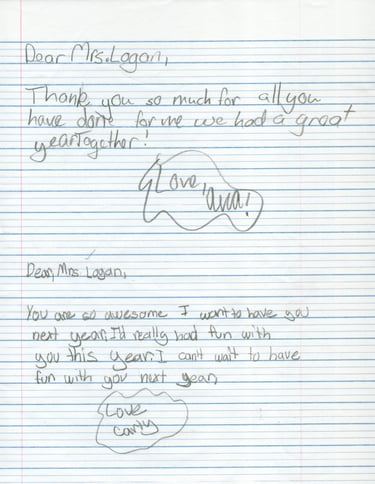 Dear Mrs. Logan,
Thank you so much for all you
have done for me we had a great
year Together!
Love,
ana!
Dear, Mrs Logan,
You are so awesome I want to have you
next year. I'd really had fun with
you this year. I can't wait to have
fun with you next year,
Love
carly